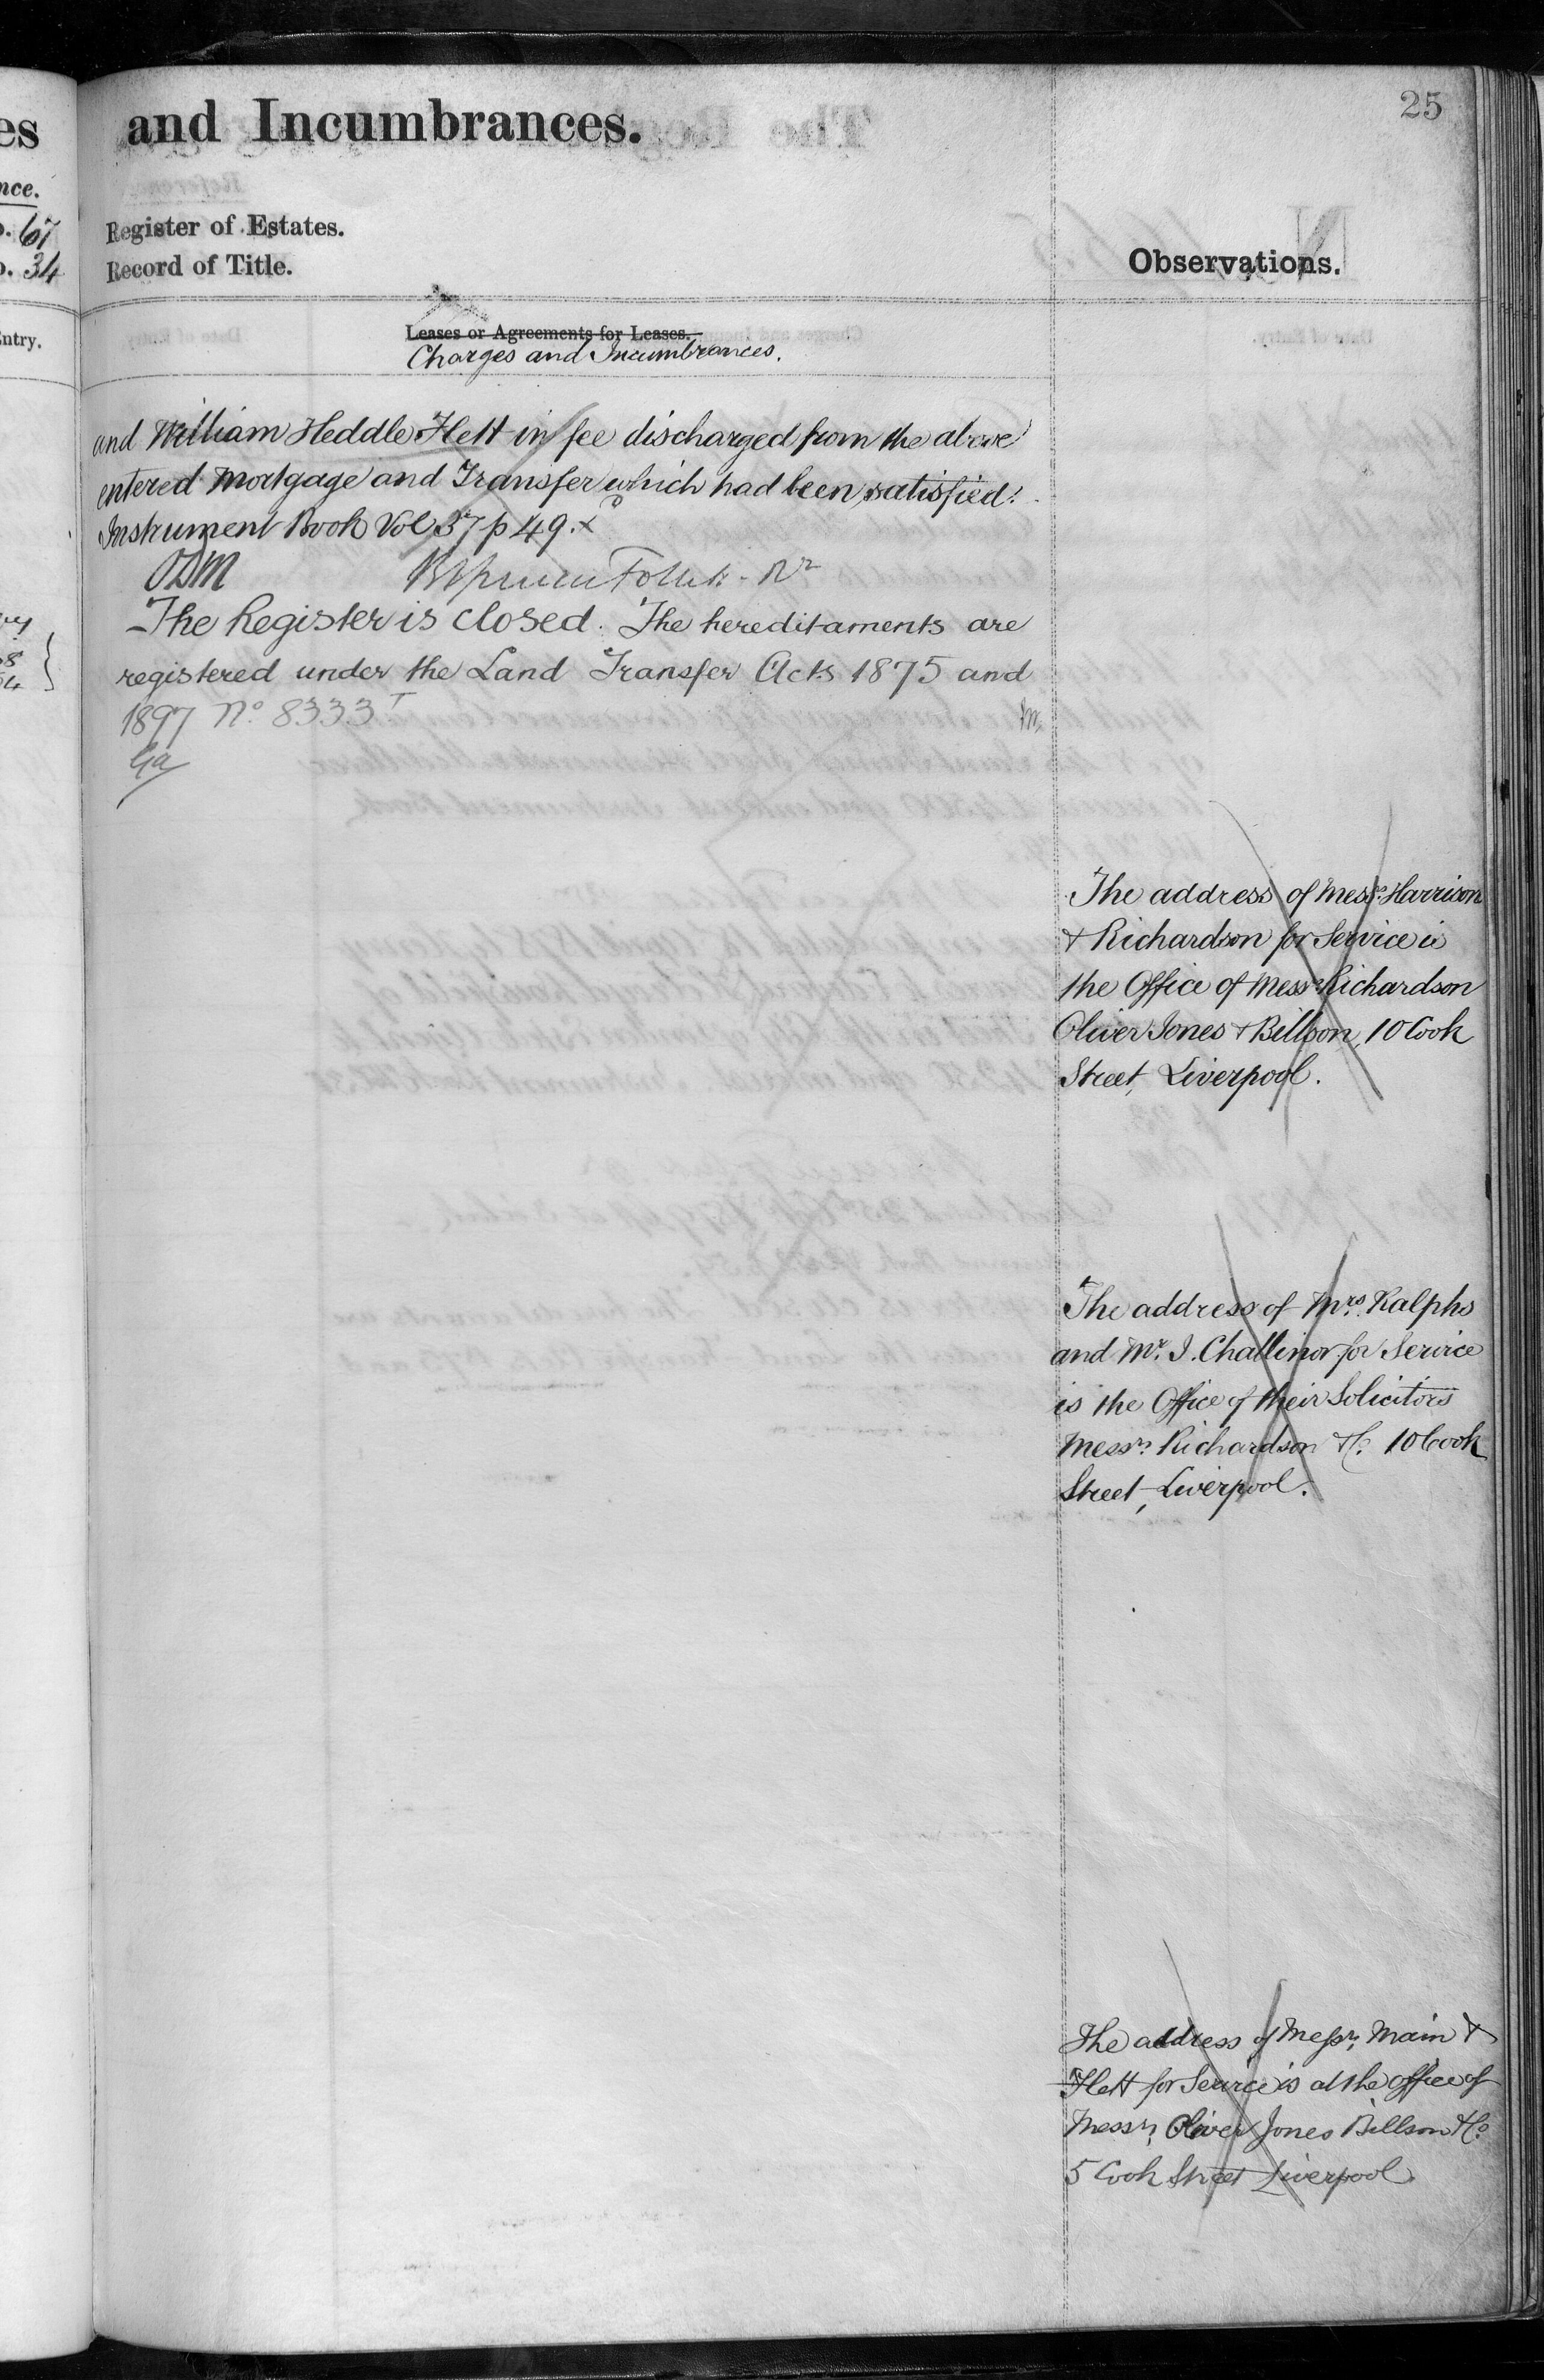 25
es
and Incumbrances.
nce.
o. 67
Register of Estates.
o. 34
Record of Title.
Observations.
Entry.
Leases or Agreements for Leases.
Charges and Incumbrances.
and William Heddle Flett in fee discharged from the above
entered Mortgage and Transfer which had been satisfied.
Instrument Book Vol 37 p 49.
Follett Rr
The Register is closed. The hereditaments are
registered under the Land Transfer Acts 1875 and
1897 No 8333
The address of Messrs Harrison
& Richardson for Service is
the Office of Messrs Richardson
Oliver Jones & Billson, 10 Cook
Street, Liverpool.
The address of Mrs. Ralphs
and Mr. J. Challinor for Service
is the Office of their Solicitors
Messrs. Richardson & Co. 10 Cook
Street, Liverpool.
The address of Messrs. Main &
Flett for Service is at the office of
Messrs. Oliver Jones Billson & Co.
5 Cook Street Liverpool